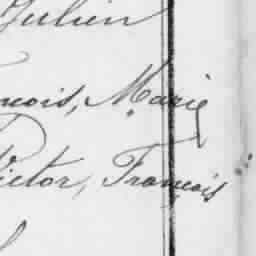 Julien
ncois, Marie
Victor, François